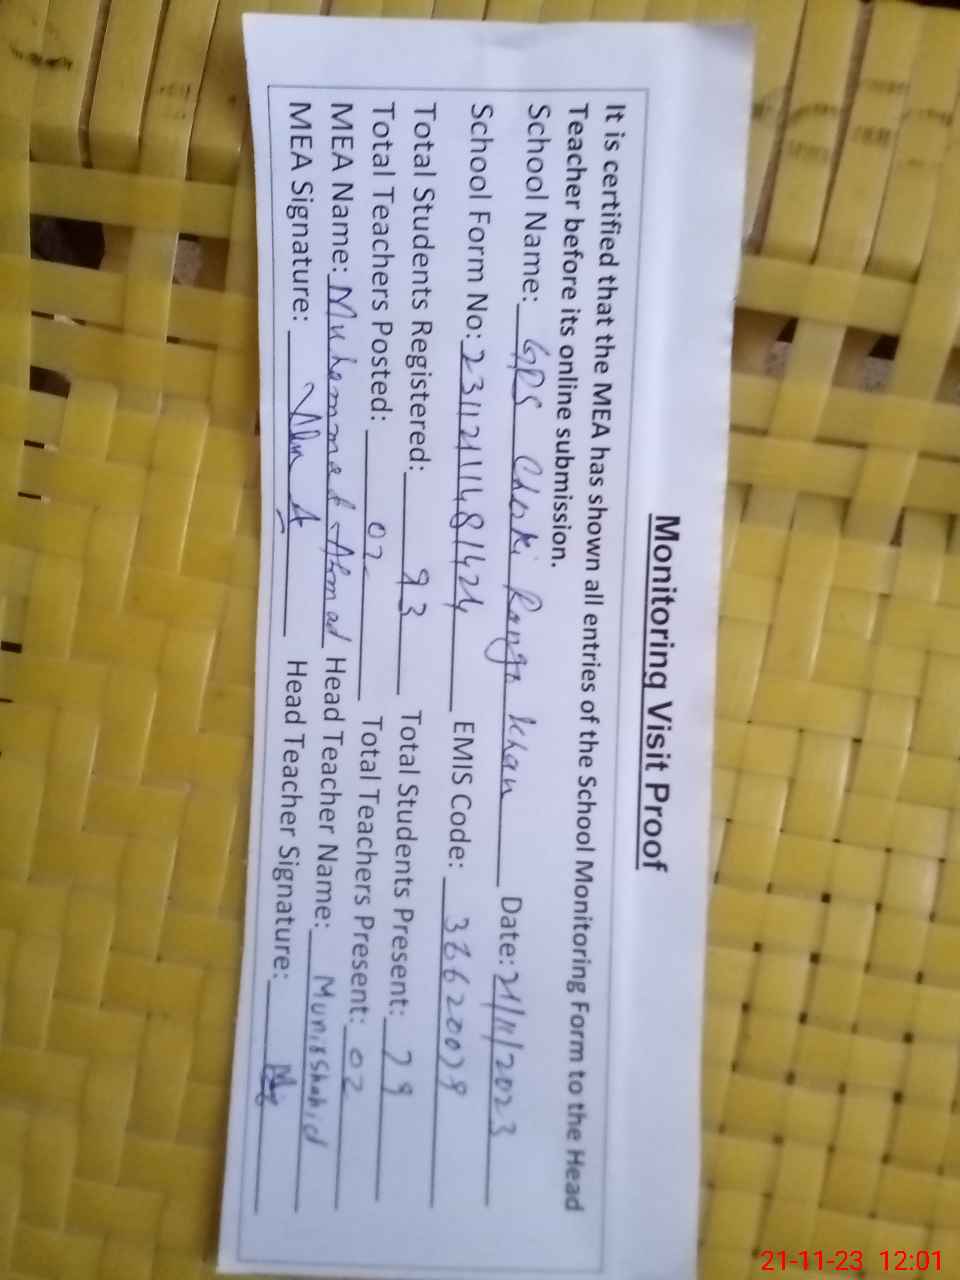 Monitoring Visit Proof
It is certified that the MEA has shown all entries of the School Monitoring Form to the Head
Teacher before its online submission.
School Name: GPS Choki Ranga Khan Date: 21/11/2023
School Form No: 2311211481424 EMIS Code: 36620079
Total Students Registered: 93 Total Students Present: 79
Total Teachers Posted: 02 Total Teachers Present: 02
MEA Name: Muhammad Ahmad Head Teacher Name: Munib Shahid
MEA Signature: Head Teacher Signature:
21-11-23 12:01